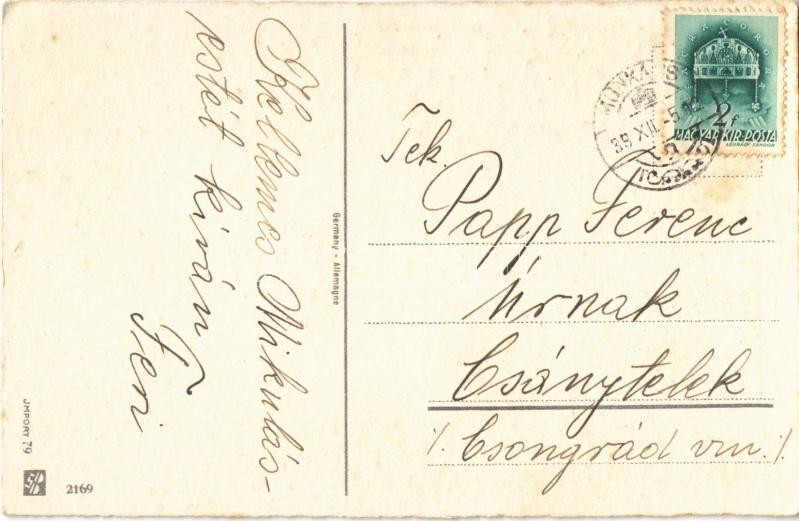 Kellemes Mikulás-
estét kíván
Feri
Germany - Allemagne
JMPORT 79
2169
SACRA CORONA
2f
MAGYAR KIR. POSTA
LÉGRÁDY SÁNDOR
39 XII -5
Tek.
Papp Ferenc
Úrnak
Csánytelek
/. Csongrád vm. /.